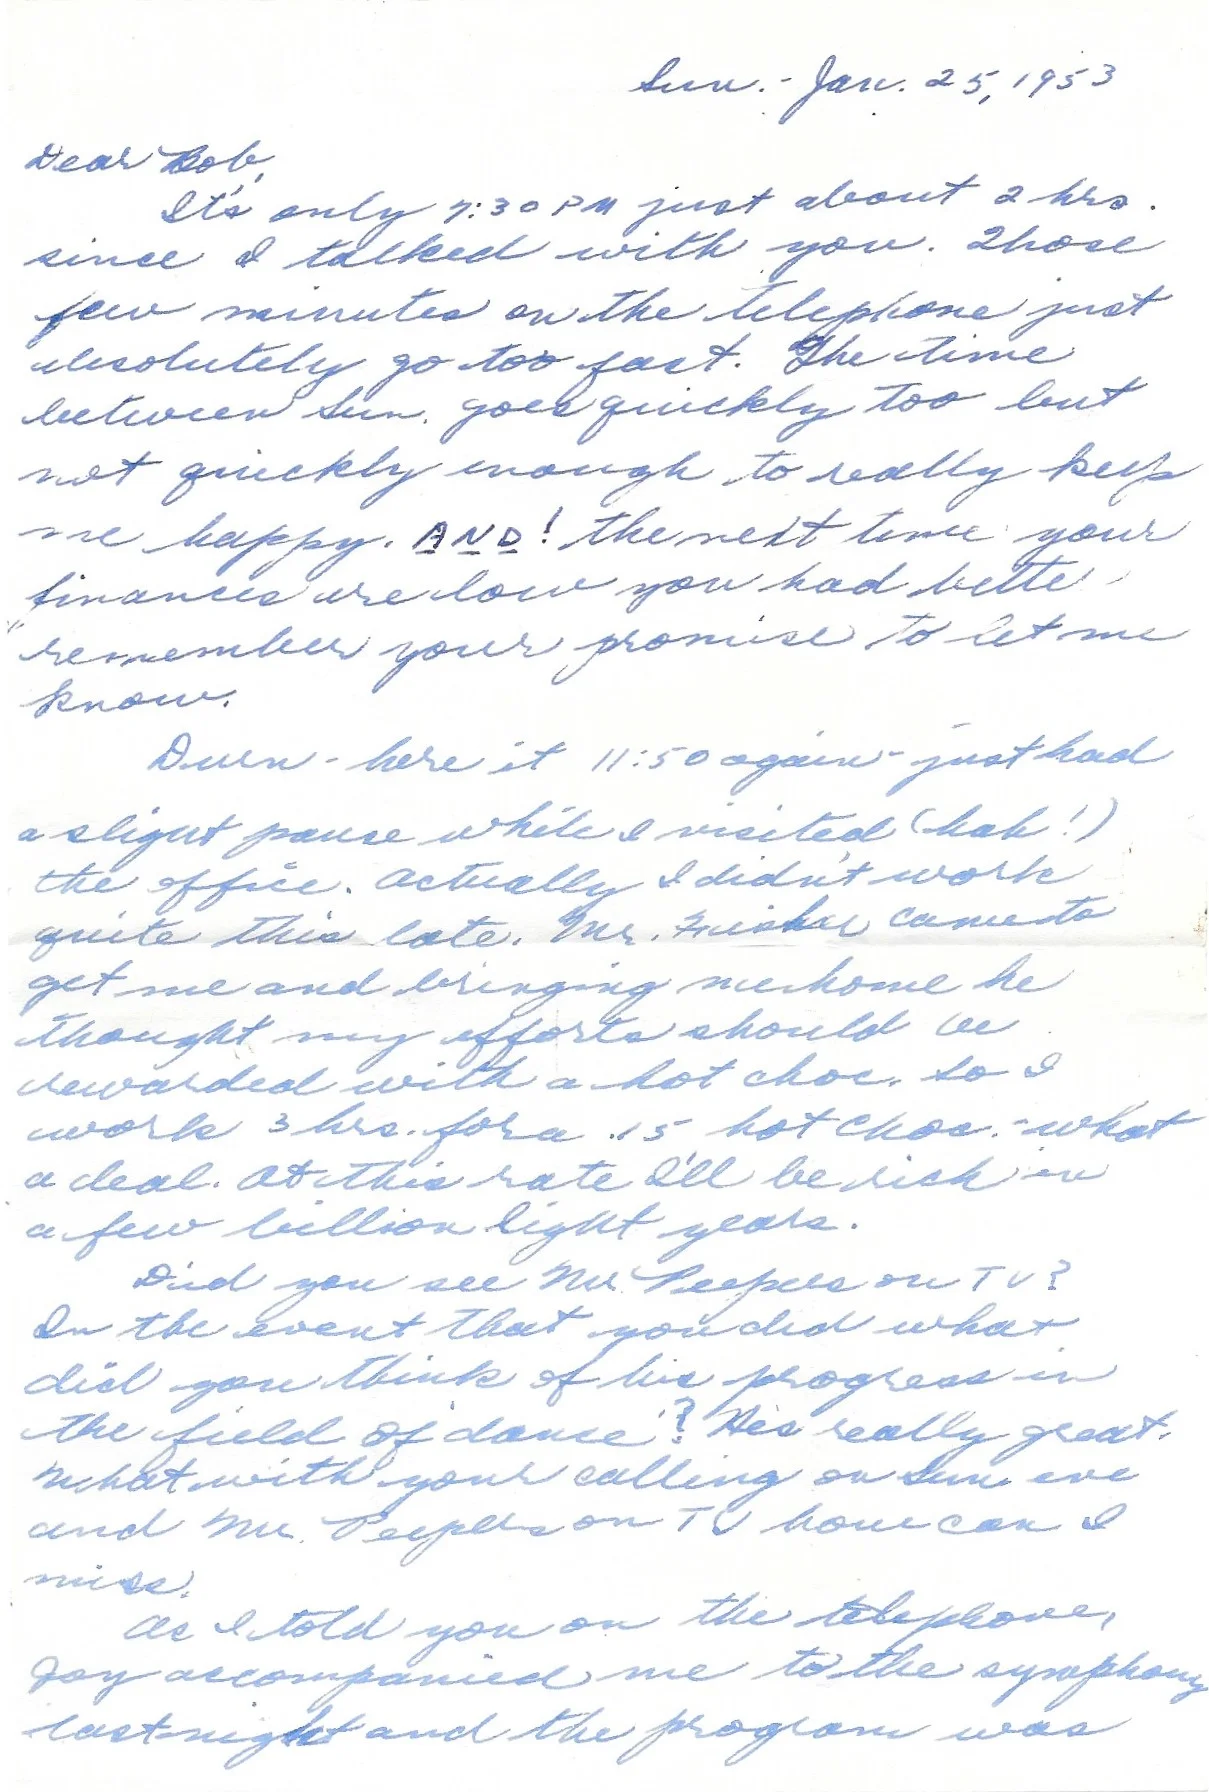 Sun. - Jan. 25, 1953
Dear Bob,
It's only 7:30 PM just about 2 hrs.
since I talked with you. Those
few minutes on the telephone just
absolutely go too fast. The time
between Sun. goes quickly too but
not quickly enough to really keep
me happy. AND! the next time your
finances are low you had bette
remember your promise to let me
know.
Durn - here it 11:50 again - just had
a slight pause while I visited (hah!)
the office. Actually I didn't work
quite this late. Mr. came to
get me and bringing me home he
thought my efforts should be
rewarded with a hot choc. So I
work 3 hrs. for a .15 hot choc. - what
a deal. At this rate I'll be rich in
a few billion light years.
Did you see Mr. Peepers on TV?
In the event that you did what
did you think of his progress in
the field of 'dance'? He's really great.
What with your calling on Sun. eve
and Mr. Peepers on TV how can I
miss.
As I told you on the telephone,
Joy accompanied me to the symphony
last night and the program was